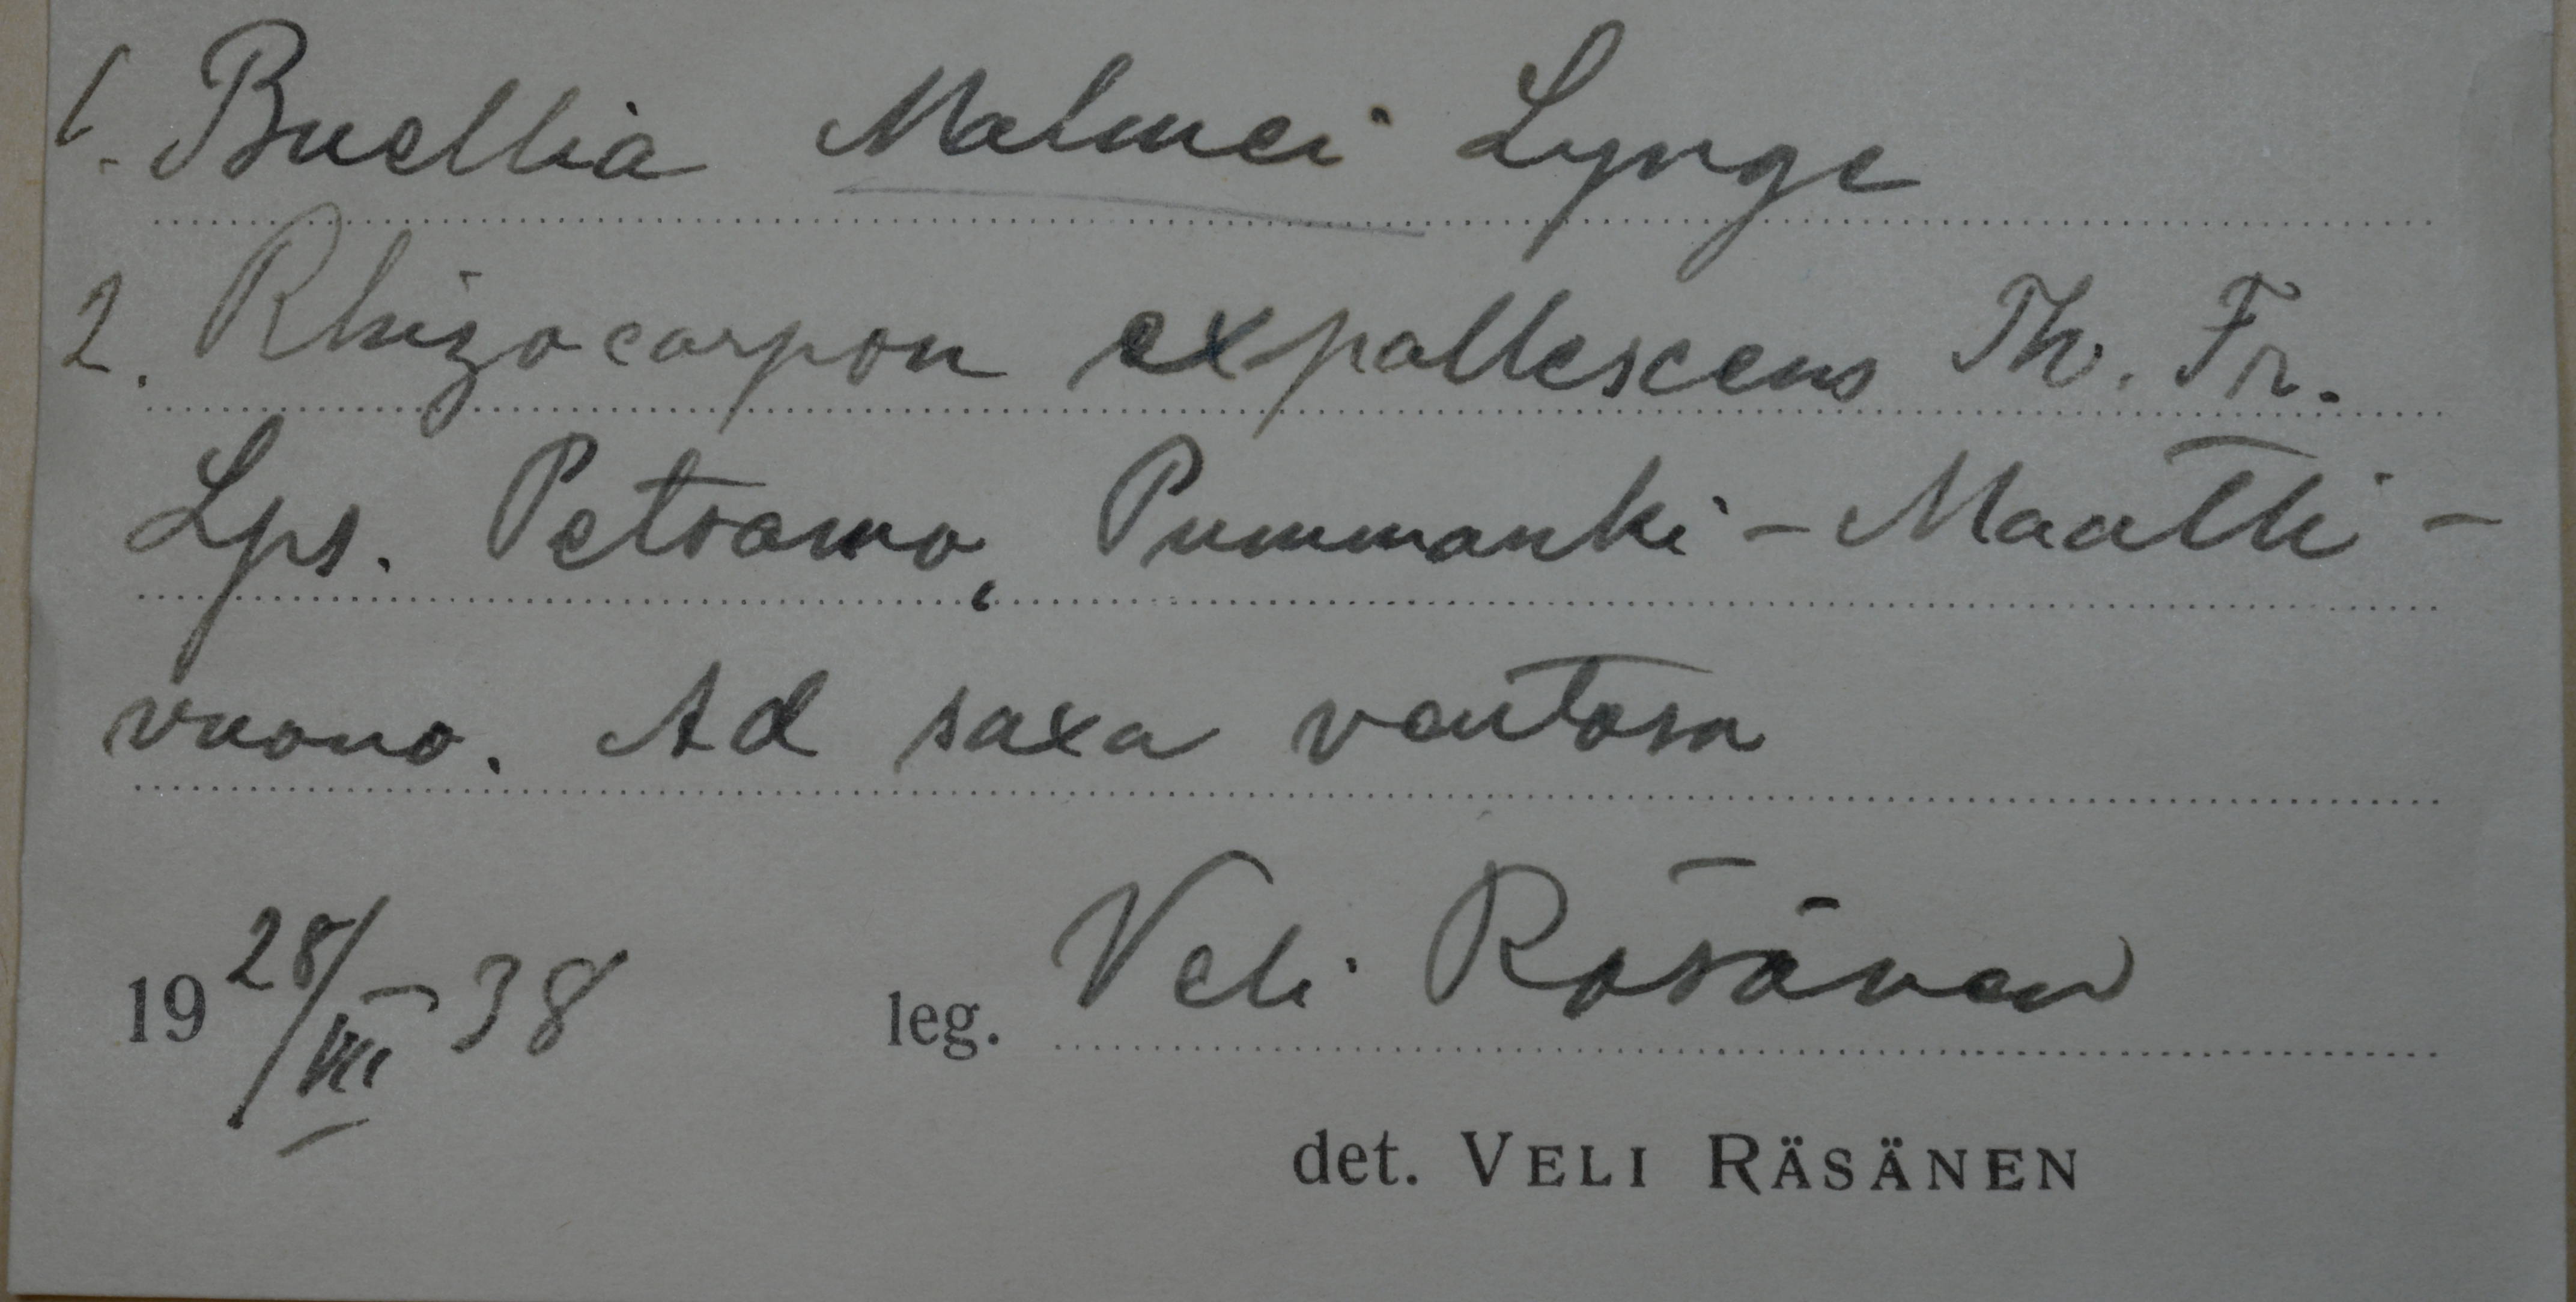 1. Buellia Malmei Lynge
2. Rhizocarpon expallescens Th. Fr.
Lps. Petsamo, Pummanki - Maatti-
vuono. Ad saxa ventosa
19 28/VII 38 leg. Veli Räsänen
det. VELI RÄSÄNEN